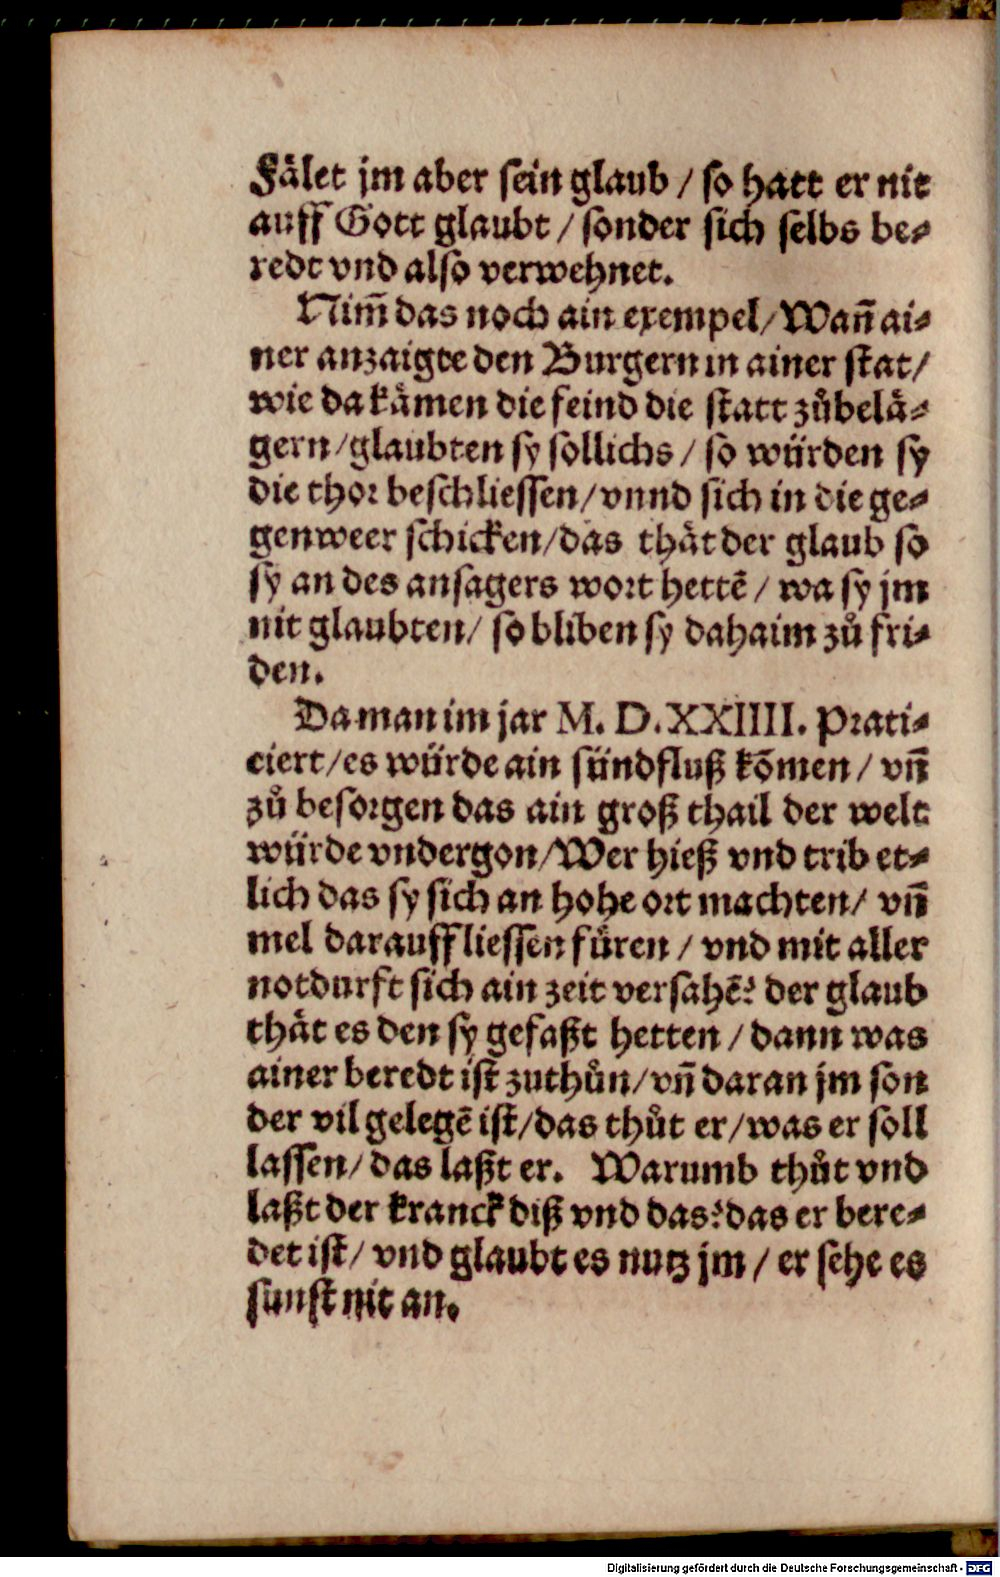 Fälet jm aber sein glaub / so hatt er nit
auff Gott glaubt / sonder sich selbs be⸗
redt vnd also verwehnet.
Nim̃ das noch ain exempel / Wañ ai⸗
ner anzaigte den Burgern in ainer stat /
wie da kämen die feind die statt zůbelä⸗
gern / glaubten sy sollichs / so würden sy
die thor beschliessen / vnnd sich in die ge⸗
genweer schicken / das thät der glaub so
sy an des ansagers wort hettẽ / wa sy jm
nit glaubten / so bliben sy dahaim zů fri⸗
den.
Da man im jar M. D. XXIIII. Prati⸗
ciert / es würde ain sündfluß kõmen / vñ
zů besorgen das ain groß thail der welt
würde vndergon / Wer hieß vnd trib et⸗
lich das sy sich an hohe ort machten / vñ
mel darauff liessen füren / vnd mit aller
notdurft sich ain zeit versahẽ? der glaub
thät es den sy gefaßt hetten / dann was
ainer beredt ist zuthůn / vñ daran jm son
der vil gelegẽ ist / das thůt er / was er soll
lassen / das laßt er. Warumb thůt vnd
laßt der kranck diß vnd das? das er bere⸗
det ist / vnd glaubt es nutz jm / er sehe es
sunst nit an.
Digitalisierung gefördert durch die Deutsche Forschungsgemeinschaft - DFG